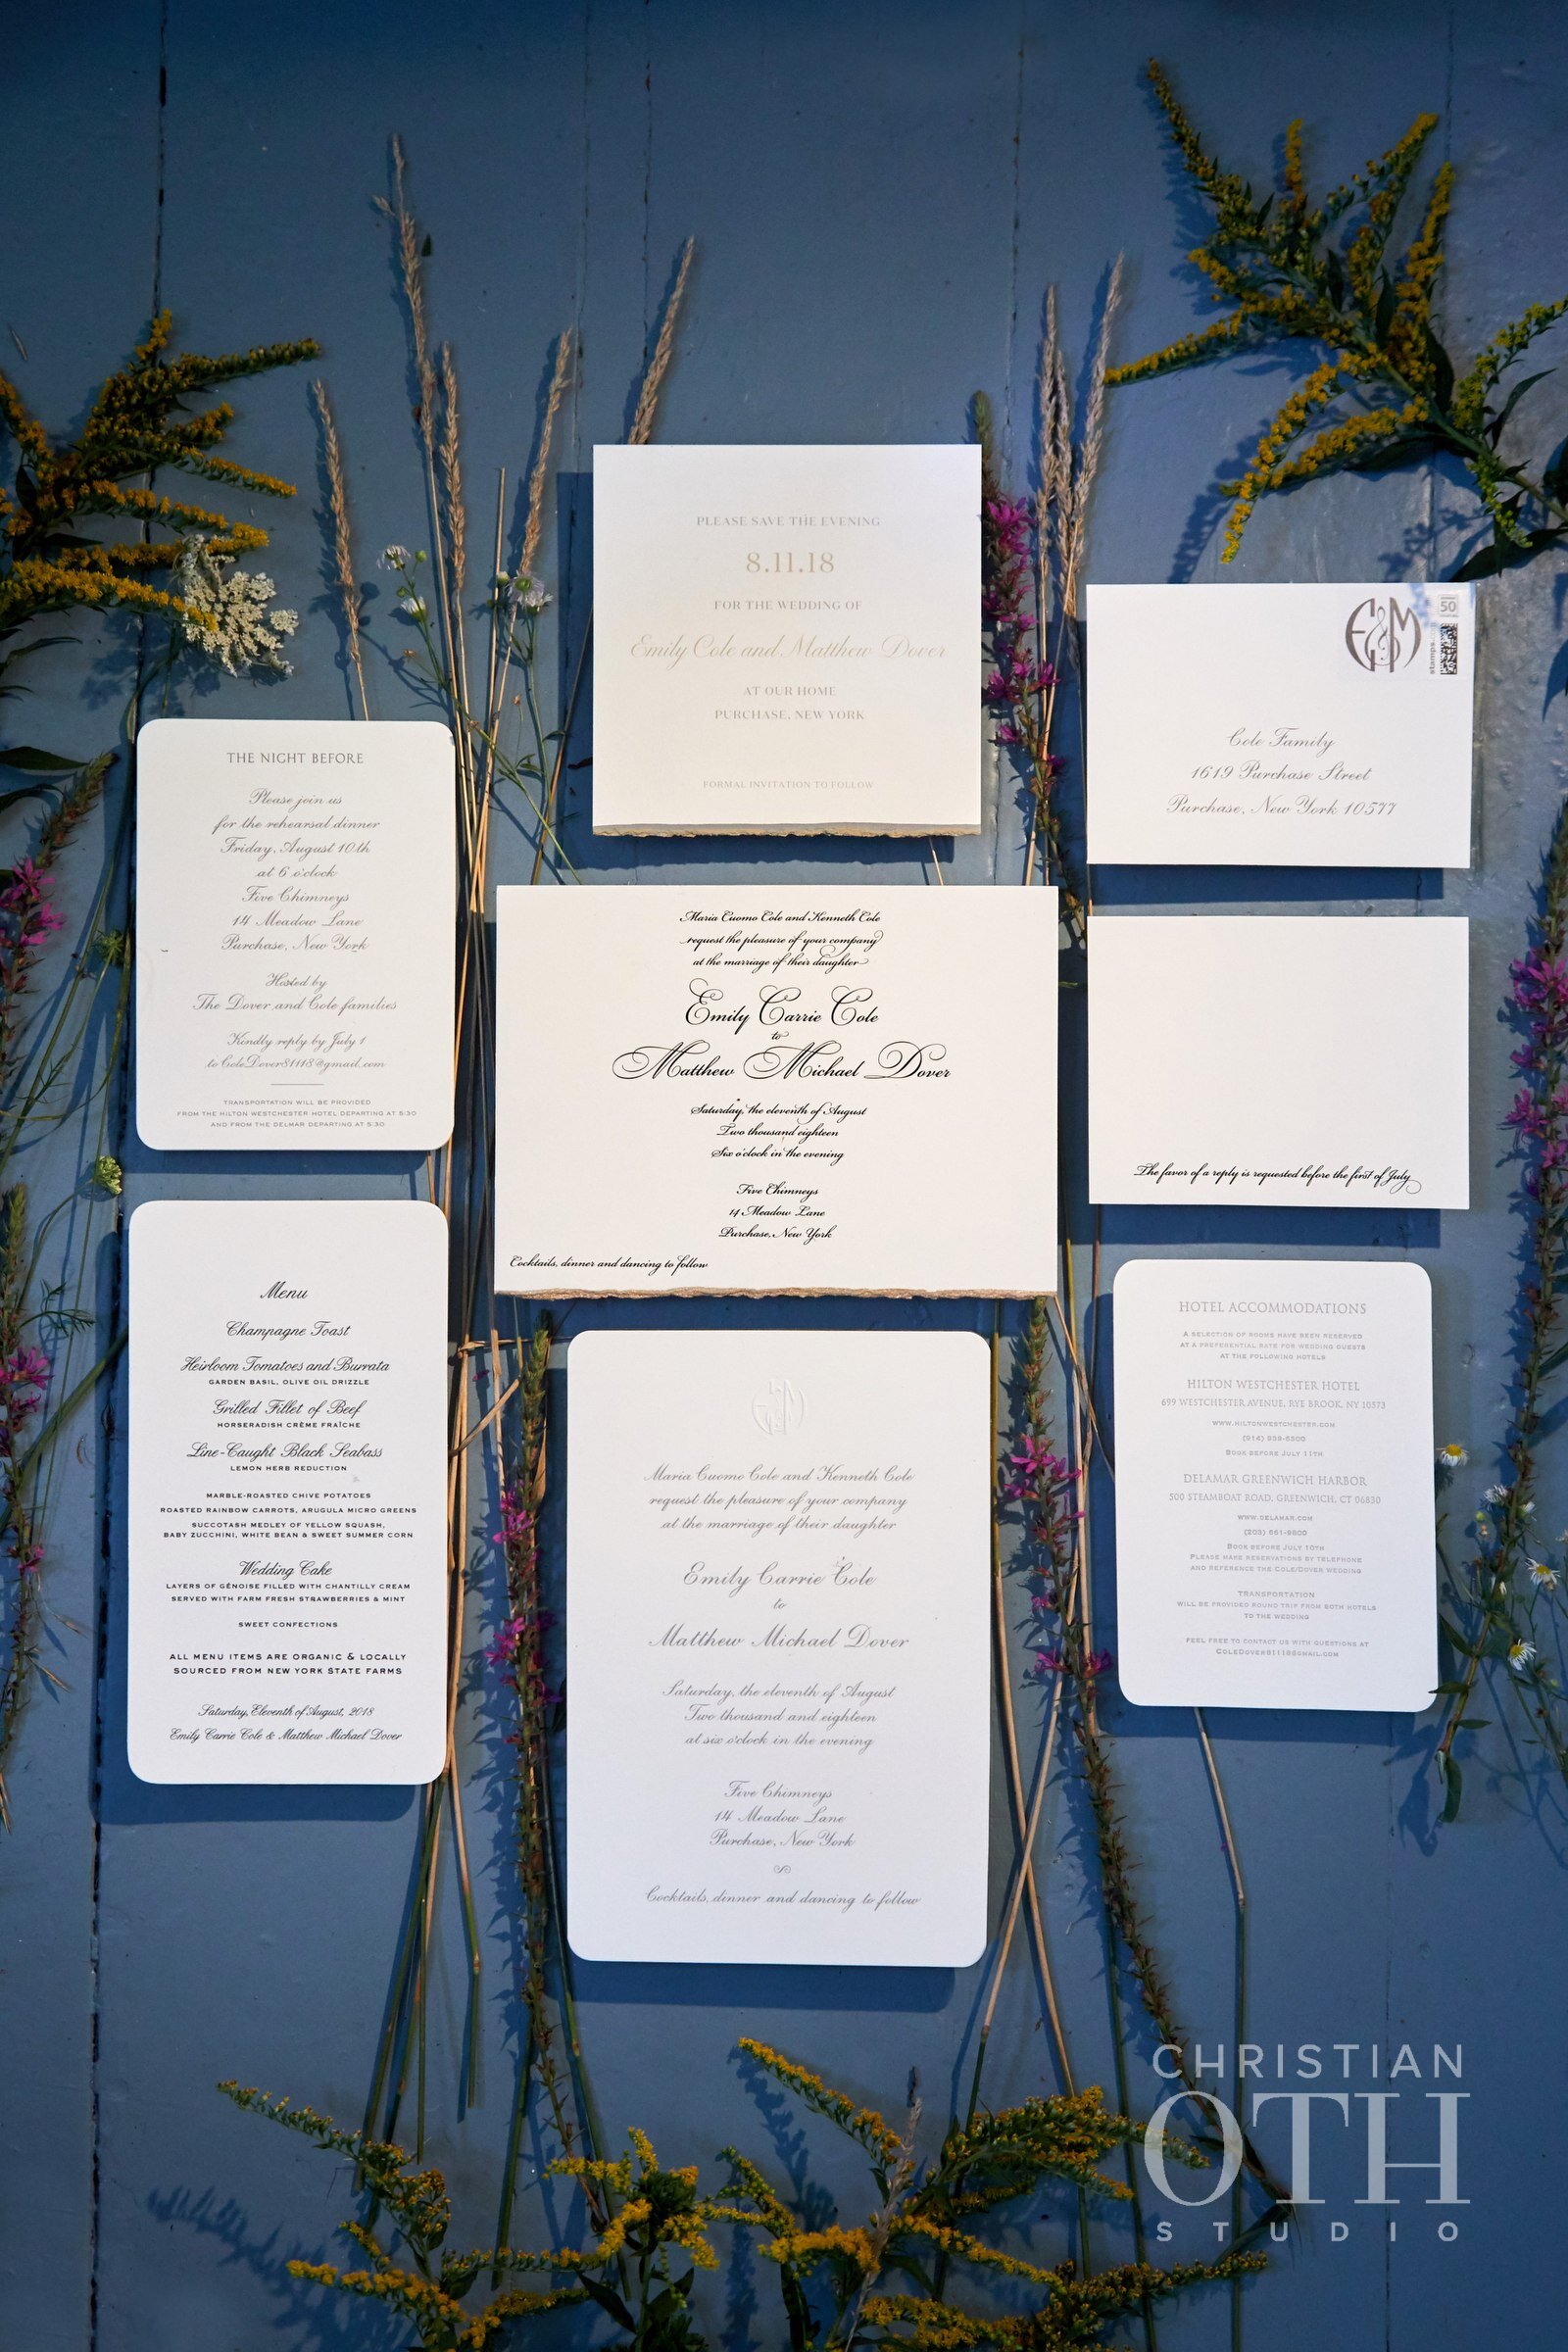 PLEASE SAVE THE EVENING
8.11.18
FOR THE WEDDING OF
Emily Cole and Matthew Dover
AT OUR HOME
PURCHASE, NEW YORK
FORMAL INVITATION TO FOLLOW
E&M
50
stamps.com
Cole Family
1619 Purchase Street
Purchase, New York 10577
THE NIGHT BEFORE
Please join us
for the rehearsal dinner
Friday, August 10th
at 6 o'clock
Five Chimneys
14 Meadow Lane
Purchase, New York
Hosted by
The Dover and Cole families
Kindly reply by July 1
to ColeDover81118@gmail.com
TRANSPORTATION WILL BE PROVIDED
FROM THE HILTON WESTCHESTER HOTEL DEPARTING AT 5:30
AND FROM THE DELMAR DEPARTING AT 5:30
Maria Cuomo Cole and Kenneth Cole
request the pleasure of your company
at the marriage of their daughter
Emily Carrie Cole
to
Matthew Michael Dover
Saturday, the eleventh of August
Two thousand eighteen
Six o'clock in the evening
Five Chimneys
14 Meadow Lane
Purchase, New York
Cocktails, dinner and dancing to follow
The favor of a reply is requested before the first of July
Menu
Champagne Toast
Heirloom Tomatoes and Burrata
GARDEN BASIL, OLIVE OIL DRIZZLE
Grilled Fillet of Beef
HORSERADISH CRÈME FRAÎCHE
Line-Caught Black Seabass
LEMON HERB REDUCTION
MARBLE-ROASTED CHIVE POTATOES
ROASTED RAINBOW CARROTS, ARUGULA MICRO GREENS
SUCCOTASH MEDLEY OF YELLOW SQUASH,
BABY ZUCCHINI, WHITE BEAN & SWEET SUMMER CORN
Wedding Cake
LAYERS OF GÉNOISE FILLED WITH CHANTILLY CREAM
SERVED WITH FARM FRESH STRAWBERRIES & MINT
SWEET CONFECTIONS
ALL MENU ITEMS ARE ORGANIC & LOCALLY
SOURCED FROM NEW YORK STATE FARMS
Saturday, Eleventh of August, 2018
Emily Carrie Cole & Matthew Michael Dover
E&M
Maria Cuomo Cole and Kenneth Cole
request the pleasure of your company
at the marriage of their daughter
Emily Carrie Cole
to
Matthew Michael Dover
Saturday, the eleventh of August
Two thousand and eighteen
at six o'clock in the evening
Five Chimneys
14 Meadow Lane
Purchase, New York
Cocktails, dinner and dancing to follow
HOTEL ACCOMMODATIONS
A SELECTION OF ROOMS HAVE BEEN RESERVED
AT A PREFERENTIAL RATE FOR WEDDING GUESTS
AT THE FOLLOWING HOTELS
HILTON WESTCHESTER HOTEL
699 WESTCHESTER AVENUE, RYE BROOK, NY 10573
WWW.HILTONWESTCHESTER.COM
(914) 939-6300
BOOK BEFORE JULY 11TH
DELAMAR GREENWICH HARBOR
500 STEAMBOAT ROAD, GREENWICH, CT 06830
WWW.DELAMAR.COM
(203) 661-9800
BOOK BEFORE JULY 10TH
PLEASE MAKE RESERVATIONS BY TELEPHONE
AND REFERENCE THE COLE/DOVER WEDDING
TRANSPORTATION
WILL BE PROVIDED ROUND TRIP FROM BOTH HOTELS
TO THE WEDDING
FEEL FREE TO CONTACT US WITH QUESTIONS AT
COLEDOVER81118@GMAIL.COM
CHRISTIAN
OTH
STUDIO